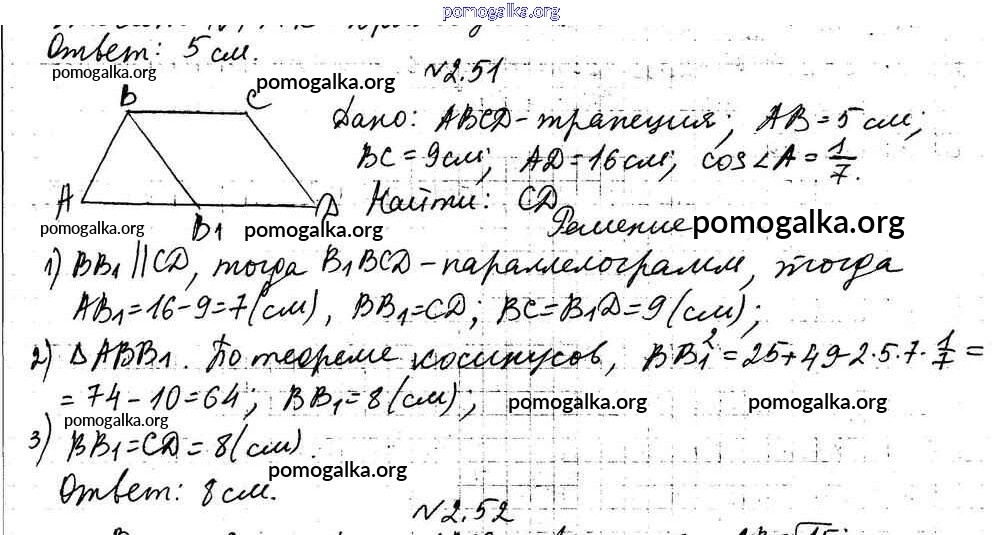 pomogalka.org
Ответ: 5 см.
pomogalka.org
№2.51
B C pomogalka.org
Дано: ABCD-трапеция; AB=5 см;
BC=9см; AD=16см; cos∠A=1/7.
A B1 D
Найти: CD
pomogalka.org pomogalka.org
Решение pomogalka.org
1) BB1 ∥ CD, тогда B1BCD-параллелограмм, тогда
AB1=16-9=7(см), BB1=CD; BC=B1D=9(см);
2) △ABB1. По теореме косинусов, BB1²=25+49-2·5·7·1/7=
=74-10=64; BB1=8(см);
pomogalka.org pomogalka.org
pomogalka.org
3) BB1=CD=8(см).
pomogalka.org
Ответ: 8 см.
№2.52